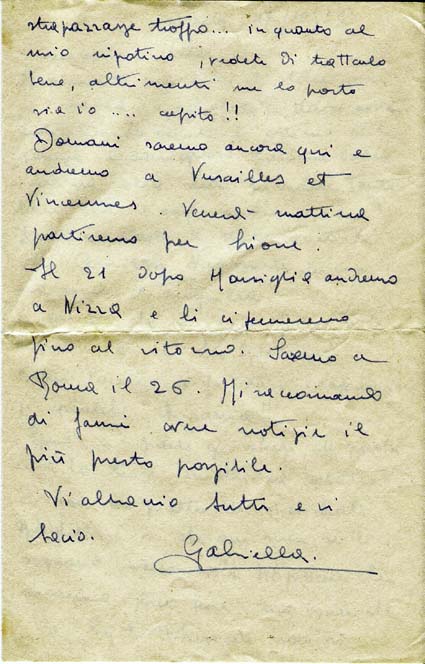 strapazzare troppo... in quanto al
mio nipotino, vedete di trattarlo
bene, altrimenti me lo porto
via io .... capito!!
Domani saremo ancora qui e
andremo a Versailles et
Vincennes. Venerdì mattina
partiremo per Lione.
Il 21 dopo Marsiglia andremo
a Nizza e li ci fermeremo
fino al ritorno. Saremo a
Roma il 26. Mi raccomando
di farmi avere notizie il
più presto possibile.
Vi abbraccio tutti e vi
bacio.
Gabriella.